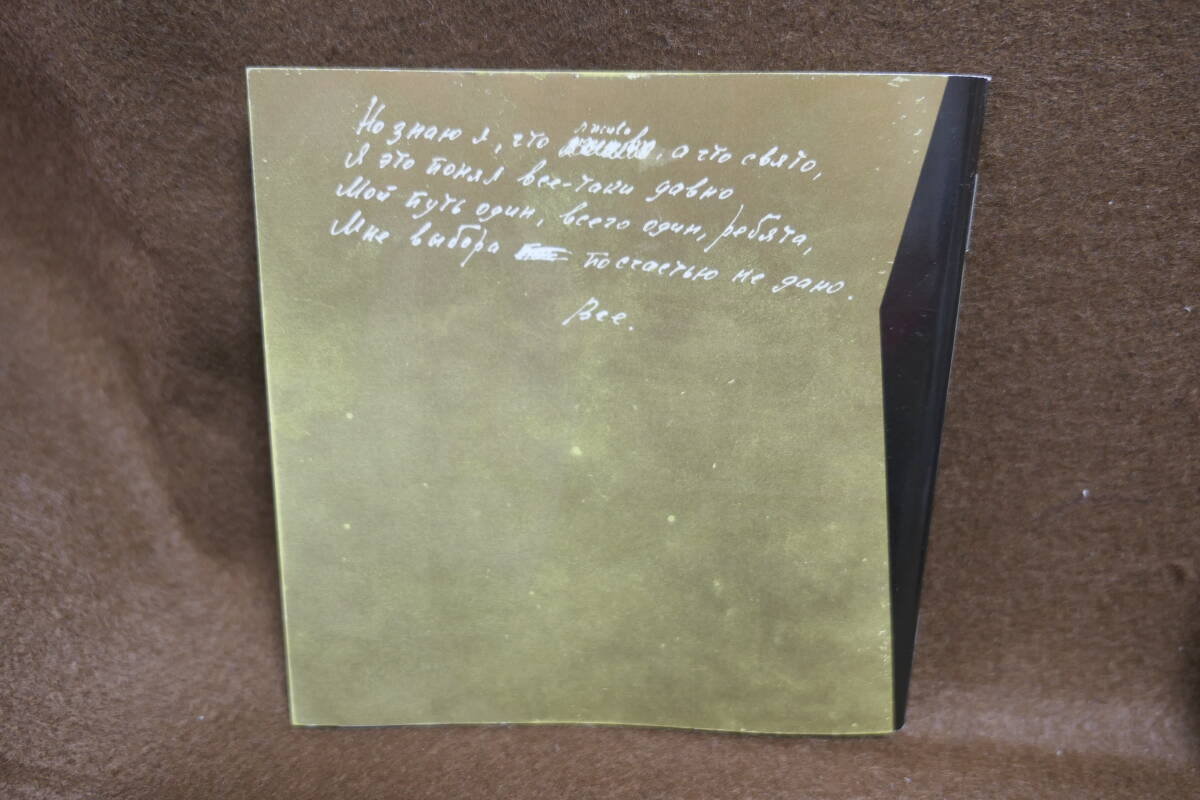 Но знаю я, что лживо, а что свято,
Я это понял все-таки давно
Мой путь один, всего один, ребята,
Мне выбора по счастью не дано.
Все.